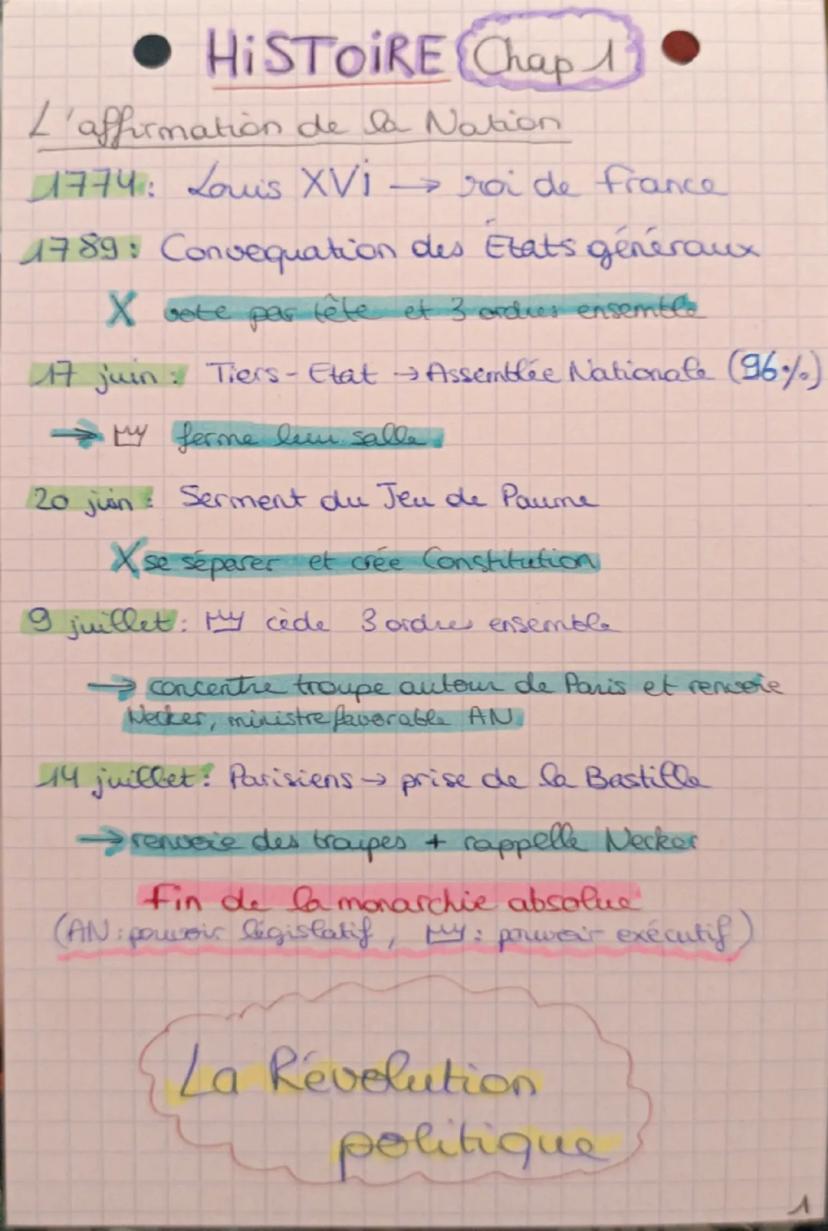 HiSTOiRE Chap 1
L'affirmation de la Nation
1774: Louis XVi → roi de France
1789: Convequation des États généraux
X vote par tête et 3 ordres ensemble
17 juin: Tiers-Etat → Assemblée Nationale (96%)
→ ferme leur salle
20 juin: Serment du Jeu de Paume
X se séparer et crée Constitution
9 juillet: cède 3 ordres ensemble
→ concentre troupe autour de Paris et renvoie
Necker, ministre favorable AN
14 juillet: Parisiens → prise de la Bastille
→ renvoie des troupes + rappelle Necker
Fin de la monarchie absolue
(AN: pouvoir législatif, : pouvoir exécutif)
La Révolution
politique
1